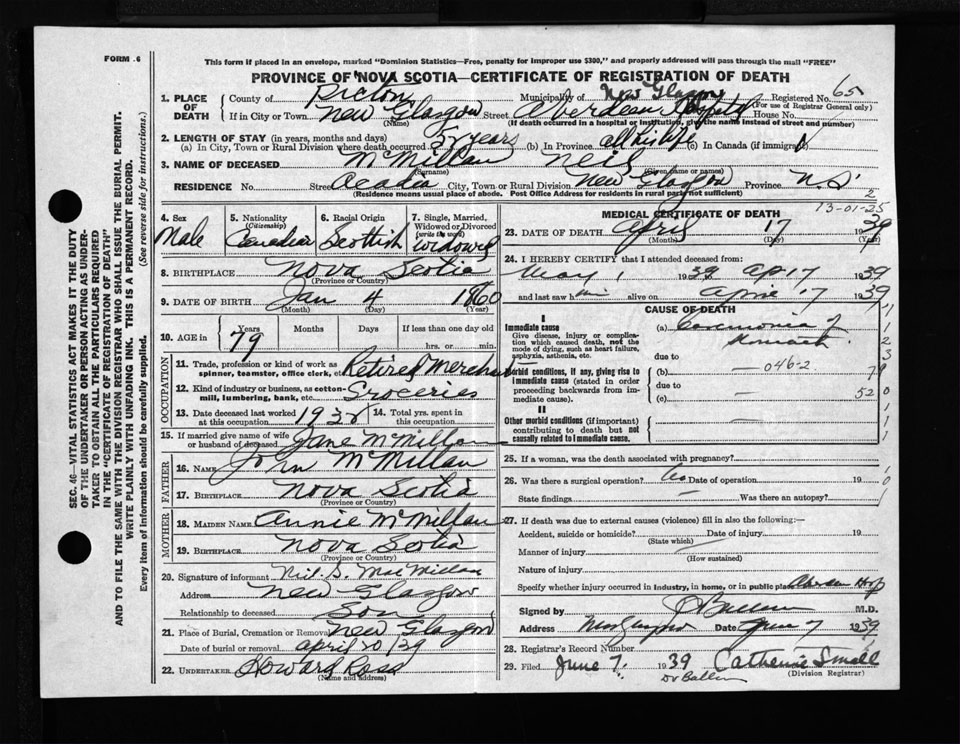 FORM .6
This form if placed in an envelope, marked "Dominion Statistics—Free, penalty for improper use $300," and properly addressed will pass through the mail "FREE"
PROVINCE OF NOVA SCOTIA—CERTIFICATE OF REGISTRATION OF DEATH
SEC. 46—VITAL STATISTICS ACT MAKES IT THE DUTY
OF THE UNDERTAKER OR PERSON ACTING AS UNDER-
TAKER TO OBTAIN ALL THE PARTICULARS REQUIRED
IN THE "CERTIFICATE OF REGISTRATION OF DEATH"
AND TO FILE THE SAME WITH THE DIVISION REGISTRAR WHO SHALL ISSUE THE BURIAL PERMIT.
WRITE PLAINLY WITH UNFADING INK. THIS IS A PERMANENT RECORD.
Every item of information should be carefully supplied. (See reverse side for instructions.)
1. PLACE OF DEATH County of Pictou Municipality of New Glasgow Registered No. 65
(For use of Registrar General only)
If in City or Town New Glasgow Street Aberdeen Hospital House No.
(Name) (If death occurred in a hospital or institution, give the name instead of street and number)
2. LENGTH OF STAY (in years, months and days)
(a) In City, Town or Rural Division where death occurred 55 years (b) In Province all his life (c) In Canada (if immigrant)
3. NAME OF DECEASED McMillan Neil
(Surname) (Given name or names)
RESIDENCE No. Street Acadia City, Town or Rural Division New Glasgow Province N.S.
(Residence means usual place of abode. Post Office Address for residents in rural parts not sufficient)
13-01-25
4. Sex Male
5. Nationality (Citizenship) Canadian
6. Racial Origin Scottish
7. Single, Married, Widowed or Divorced (write the word) widowed
8. BIRTHPLACE Nova Scotia
(Province or Country)
9. DATE OF BIRTH Jan 4 1860
(Month) (Day) (Year)
10. AGE in Years Months Days If less than one day
79 hrs. or min.
OCCUPATION
11. Trade, profession or kind of work as spinner, teamster, office clerk, etc. Retired Merchant
12. Kind of industry or business, as cotton-mill, lumbering, bank, etc. Groceries
13. Date deceased last worked at this occupation 14. Total yrs. spent in this occupation
15. If married give name of wife or husband of deceased Jane McMillan
FATHER
16. NAME John McMillan
17. BIRTHPLACE Nova Scotia
(Province or Country)
MOTHER
18. MAIDEN NAME Annie McMillan
19. BIRTHPLACE Nova Scotia
(Province or Country)
20. Signature of informant Neil S. MacMillan
Address New Glasgow
Relationship to deceased Son
21. Place of Burial, Cremation or Removal New Glasgow
Date of burial or removal April 20/39
22. UNDERTAKER Howard Ross
(Name and address)
MEDICAL CERTIFICATE OF DEATH
23. DATE OF DEATH April 17 1939
(Month) (Day) (Year)
24. I HEREBY CERTIFY that I attended deceased from:
May 1 1939 Ap 17 1939
and last saw him alive on April 17 1939
CAUSE OF DEATH
I
Immediate cause
Give disease, injury or complication which caused death, not the mode of dying, such as heart failure, asphyxia, asthenia, etc.
(a) Carcinoma of Stomach
due to
Morbid conditions, if any, giving rise to immediate cause (stated in order proceeding backwards from immediate cause).
(b) 046-2
due to
(c)
II
Other morbid conditions (if important) contributing to death but not causally related to immediate cause.
25. If a woman, was the death associated with pregnancy?
26. Was there a surgical operation? Date of operation 19
State findings Was there an autopsy?
27. If death was due to external causes (violence) fill in also the following:—
Accident, suicide or homicide? Date of injury 19
(State which)
Manner of injury
(How sustained)
Nature of injury
Specify whether injury occurred in industry, in home, or in public place
Signed by M.D.
Address New Glasgow Date June 7 1939
28. Registrar's Record Number
29. Filed June 7, 1939 Catherine Small
(Division Registrar)